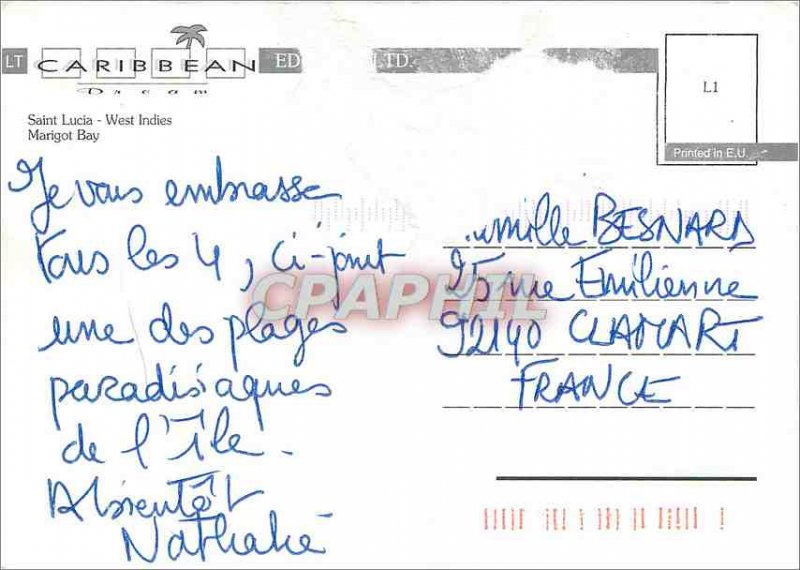 LT CARIBBEAN ED LTD.
Dream
Saint Lucia - West Indies
Marigot Bay
L1
Printed in E.U.
Je vous embrasse
tous les 4, ci-joint
une des plages
paradisiaques
de l'Île.
Abientôt
Nathalie
amille BESNARD
25 rue Emilienne
92140 CLAMART
FRANCE
CPAPHIL